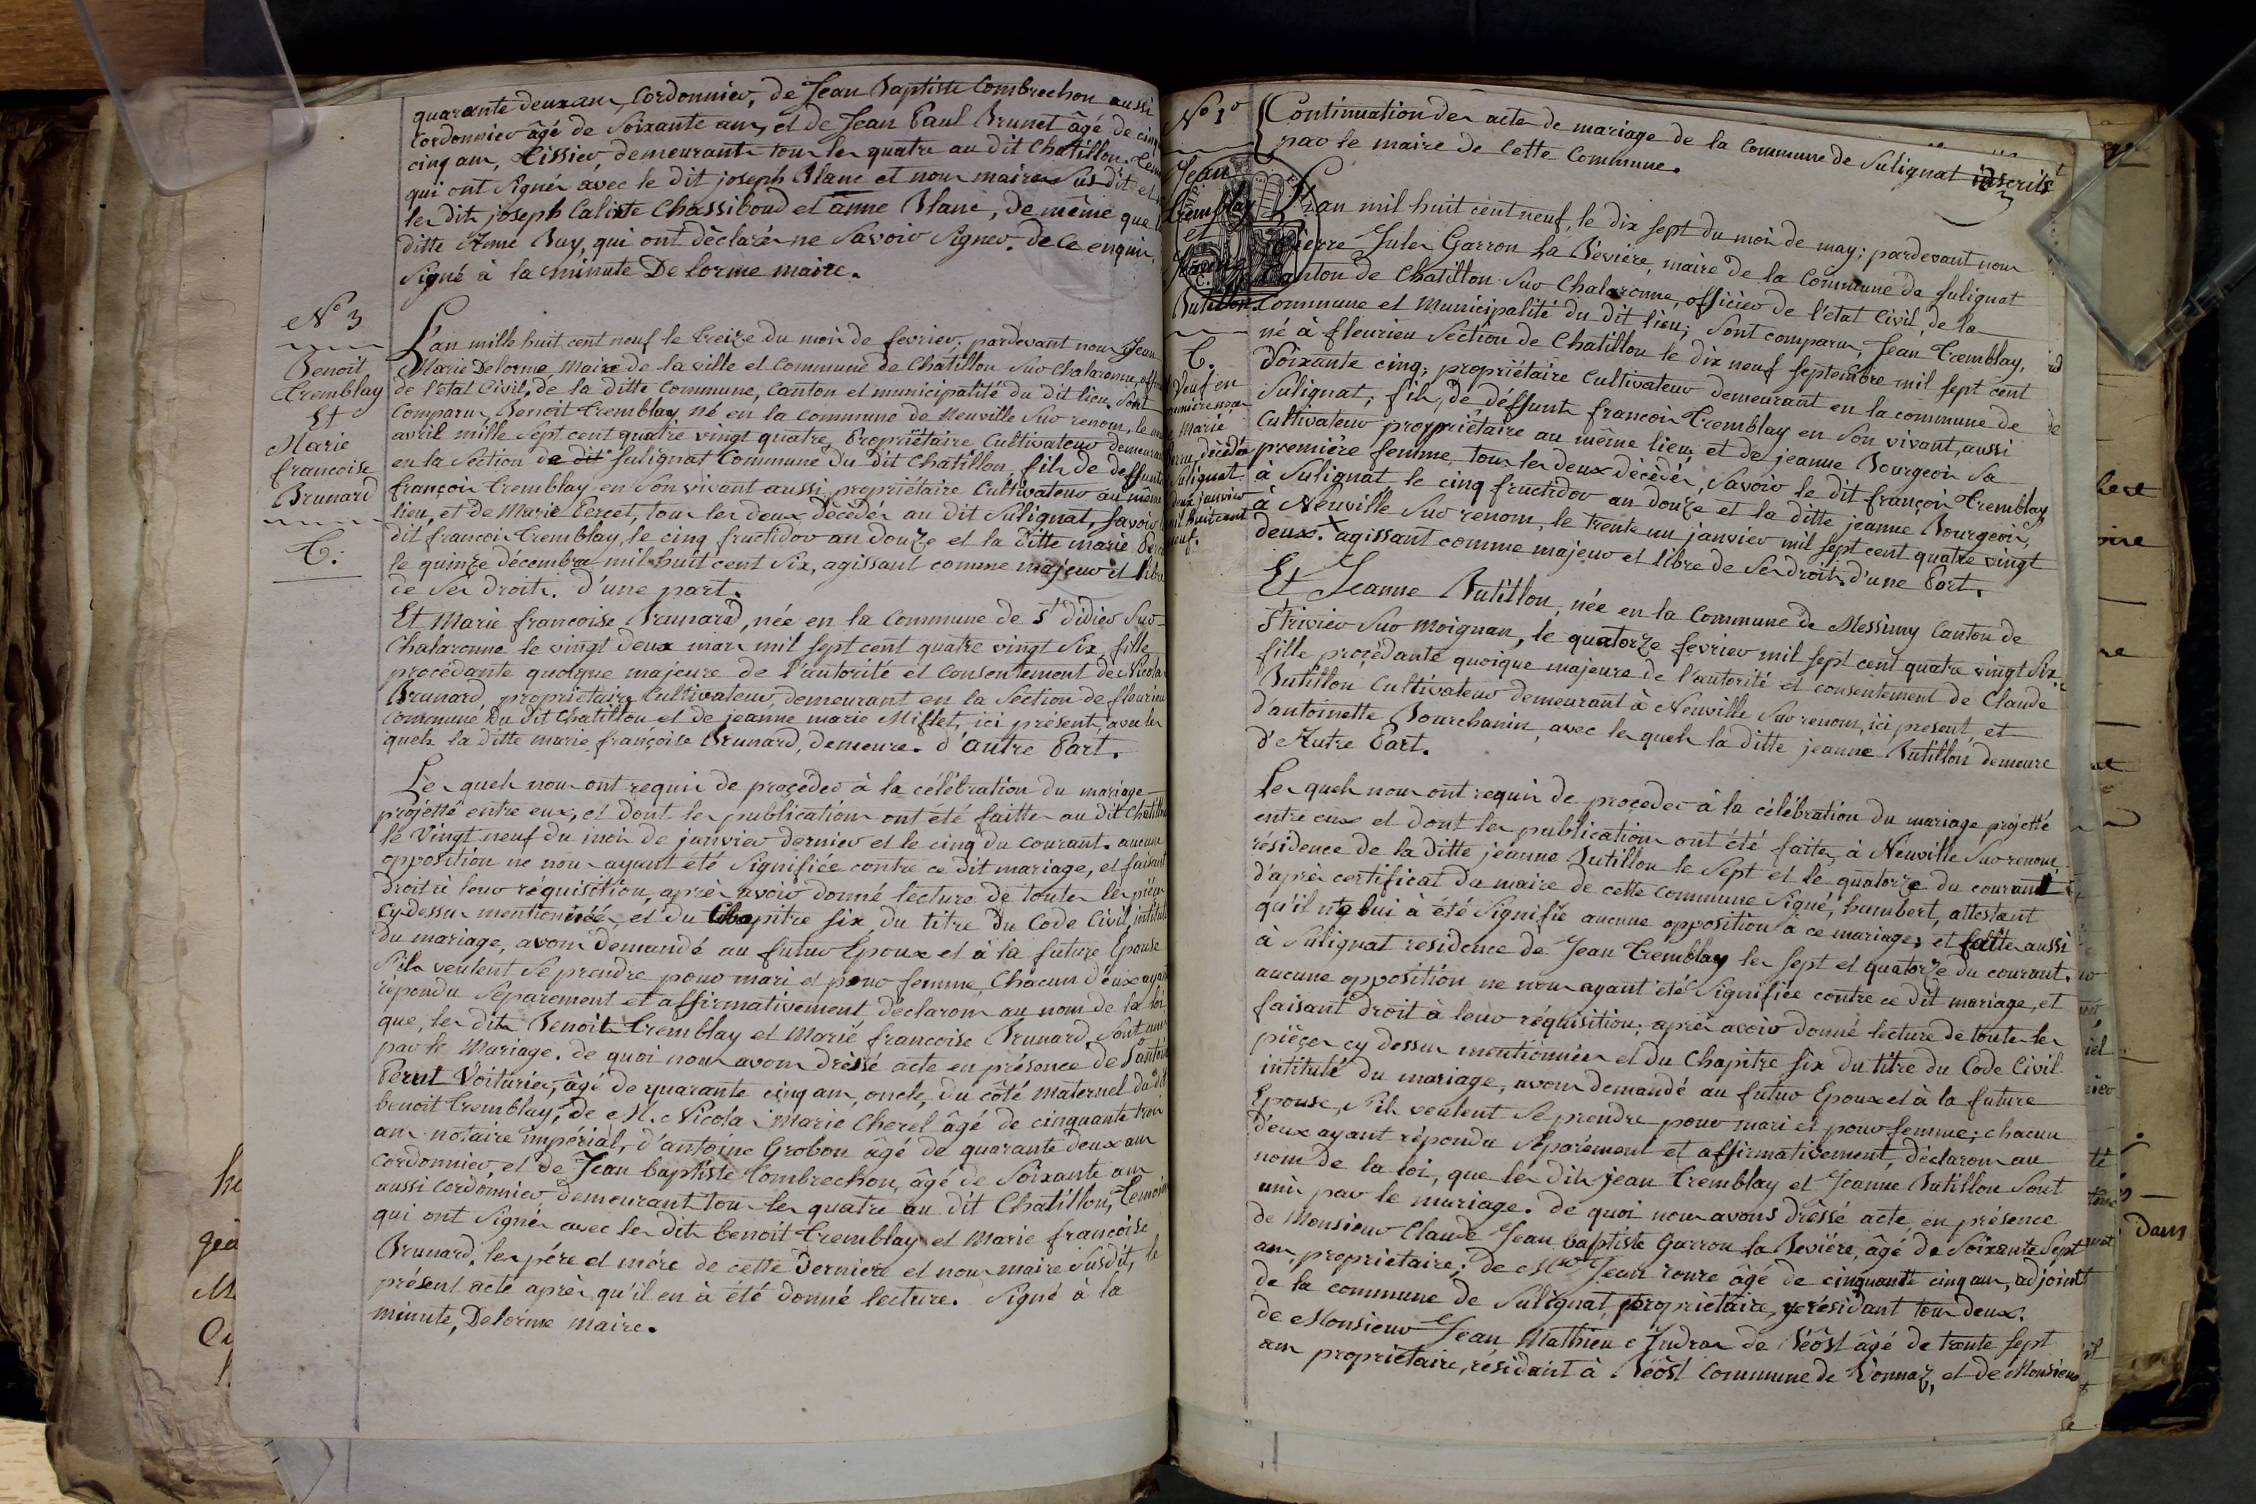 quarante deux ans, Cordonnier, de Jean Baptiste Combrechon aussi
Cordonnier âgé de Soixante ans, et de Jean Paul Brunet âgé de cinq
cinq ans, tissier demeurants tous les quatre au dit Chatillon,
qui ont Signés avec le dit joseph Blanc et nous maire Sus dit et
les dits joseph Calixte Chassiboud et anne Blanc, de même que
ditte Anne Buy, qui ont déclarés ne Savoir Signer. de Ce enquis,
Signé à la minute Delorme maire.
N° 3
Benoit
Tremblay
Et
Marie
francoise
Brunard
C.
L'an mille huit cent neuf le treize du mois de fevrier; pardevant nous Jean
Marie Delorme, Maire de la ville et Commune de Chatillon Sur Chalaronne,
de l'état Civil, de la ditte Commune, Canton et municipalité du dit lieu. Sont
Comparus, Benoit Tremblay né en la Commune de Neuville Sur renom, le
avril mille Sept cent quatre vingt quatre, Propriétaire Cultivateur demeurant
en la Section de dit Sulignat Commune Du dit Chatillon, fils de deffunts
françois Tremblay en Son vivant aussi propriétaire Cultivateur au même
lieu, et de Marie Percet, tous les deux décédés au dit Sulignat, Savoir
dit francois Tremblay, le cinq fructidor an douze et la ditte marie
le quinze décembre mil huit cent Six, agissant comme majeur et libre
de Ses droits. d'une part.
Et Marie francoise Brunard, née en la Commune de St didier Sur
Chalaronne le vingt deux mars mil sept cent quatre vingt Six, fille
procédante quoique majeure de l'autorité et Consentement de Nicolas
Brunard, propriétaire Cultivateur, demeurant en la Section de fleurieu
Commune Du dit Chatillon et de jeanne marie Millet, ici présent, avec les
quels la ditte marie françoise Brunard, demeure. d'autre Part.
Les quels nous ont requis de procéder à la célébration du mariage
projetté entre eux, et dont les publications ont été faittes au dit Chatillon
le Vingt neuf du mois de janvier dernier et le cinq du Courant. aucune
opposition ne nous ayant été Signifiée contre ce dit mariage, et faisant
droit à leur réquisition, après avoir donné lecture de toutes les pièces
cy dessus mentionnées, et du Chapitre six du titre Du Code Civil, intitulé
du mariage, avons Demandé au futur Epoux et à la future Epouse
S'ils veulent Se prendre pour mari et pour femme, Chacun d'eux ayant
repondu Séparement et affirmativement déclarons au nom de la loi,
que, les dits Benoit Tremblay et Marie francoise Brunard Sont unis
par le Mariage. de quoi nous avons dressé acte en présence de
Percet Voiturier, âgé de quarante cinq ans, oncle, du côté maternel du dit
benoit Tremblay, de M. Nicolas Marie Cherel âgé de cinquante trois
ans notaire impérial, d'antoine Grobon âgé de quarante deux ans
Cordonnier, et de Jean baptiste Combrechon, âgé de Soixante ans
aussi cordonnier demeurant tous les quatre au dit Chatillon, Temoins
qui ont Signés avec les dits benoit Tremblay et Marie francoise
Brunard, les père et mère de cette Derniere et nous maire Susdit, le
présent acte après qu'il en à été donné lecture. Signé à la
minute, Delorme maire.
N° 1er
Continuation des actes de mariage de la Commune de Sulignat inscrits
par le maire de Cette Commune.
Jean
Tremblay
et
Jeanne
Butillon
C.
Veuf en
de Marie
décédée
Sulignat
deux janvier
mil huit cent
neuf.
L'an mil huit cent neuf, le dix sept du mois de may; pardevant nous
Pierre Jules Garron La Bévière, maire de la Commune de Sulignat
Canton de Chatillon Sur Chalaronne, officier de l'état Civil, de la
Commune et Municipalité du dit lieu; Sont comparus, Jean Tremblay,
né à fleurieu Section de Chatillon le dix neuf Septembre mil sept cent
Soixante cinq, propriétaire Cultivateur demeurant en la commune de
Sulignat, fils, de déffunts francois Tremblay en Son vivant, aussi
Cultivateur propriétaire au même lieu, et de jeanne Bourgeois Sa
première femme, tous les deux décédés, Savoir le dit françois Tremblay
à Sulignat le cinq fructidor an douze et la ditte jeanne Bourgeois,
à Neuville Sur renom, le trente un janvier mil sept cent quatre vingt
deux. X agissant comme majeur et libre de Ses droits d'une Part.
Et Jeanne Butillon, née en la Commune de Messimy Canton de
St trivier Sur Moignan, le quatorze fevrier mil sept cent quatre vingt Six,
fille procédante quoique majeure de l'autorité et consentement de Claude
Butillon Cultivateur demeurant à Neuville Sur renom, ici present, et
d'antoinette Bourchanin, avec les quels la ditte jeanne Butillon demeure
d'Autre Part.
Les quels nous ont requis de procéder à la célébration du mariage projetté
entre eux et dont les publications ont été faites, à Neuville Sur renom
résidence de la ditte jeanne Butillon le Sept et le quatorze du courant
d'après certificat du maire de cette commune Signé, humbert, attestant
qu'il ne lui à été Signifié aucune opposition à ce mariage; et faittes aussi
à Sulignat residence de Jean Tremblay les Sept et quatorze du courant.
aucune opposition ne nous ayant été Signifiée contre ce dit mariage, et
faisant droit à leur réquisition, après avoir donné lecture de toutes les
pièces cy dessus mentionnées et du Chapitre six du titre du Code Civil
intitulé du mariage, avons demandé au futur Epoux et à la future
Epouse, S'ils veulent Se prendre pour mari et pour femme; chacun
d'eux ayant répondu Séparement et affirmativement, déclarons au
nom de la loi, que les dits jean Tremblay et Jeanne Butillon Sont
unis par le mariage. de quoi nous avons dréssé acte en présence
de Monsieur Claude Jean baptiste Garron la Bevière, âgé de Soixante Sept
ans, propriétaire; de Jean roure âgé de cinquante cinq ans, adjoint
de la commune de Sulignat, propriétaire, y résidant tous deux.
de Monsieur Jean Mathieu Judras de Béost âgé de trente sept
ans propriétaire, résidant à Béost Commune de Vonnaz, et de Monsieur
dans